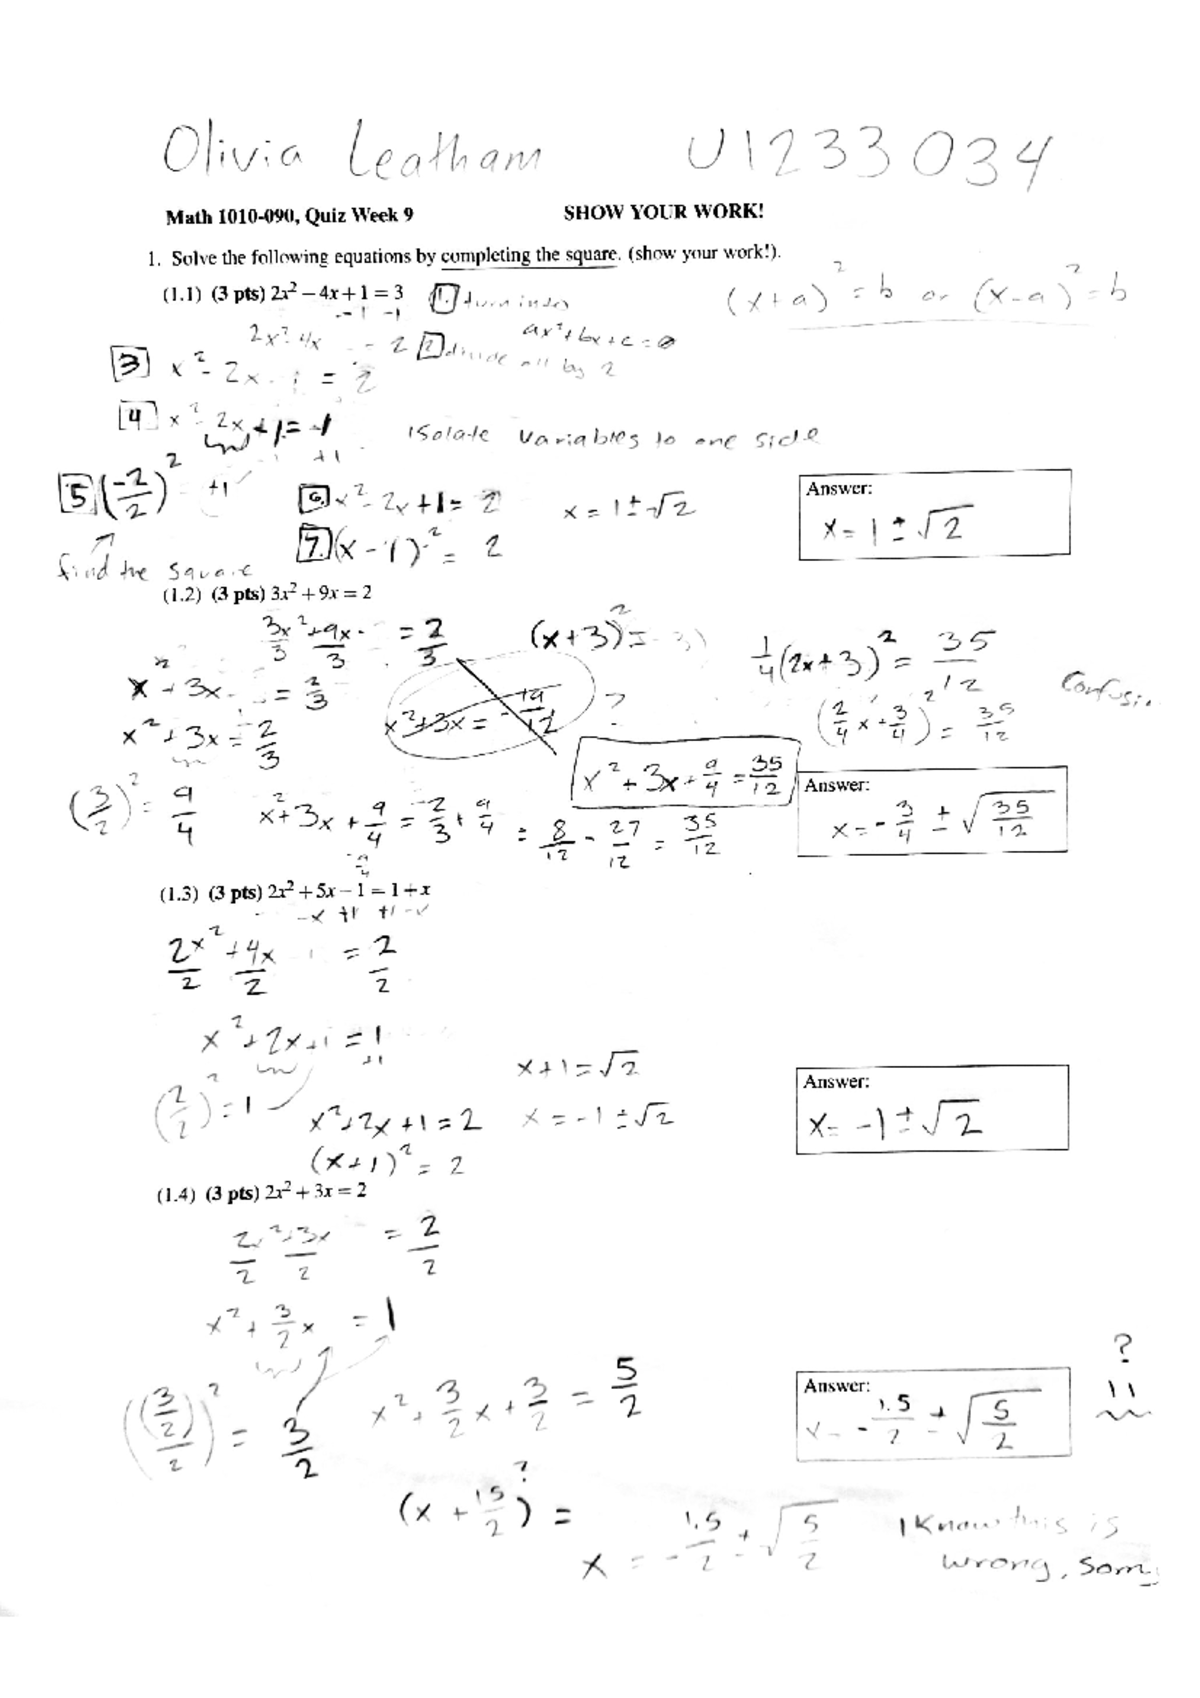 Olivia Leatham U1233034
Math 1010-090, Quiz Week 9 SHOW YOUR WORK!
1. Solve the following equations by completing the square. (show your work!).
(x+a)² = b or (x-a)² = b
(1.1) (3 pts) 2x² – 4x + 1 = 3 1. turn into
-1 -1 ax²+bx+c=0
2x²-4x - 2 2 divide all by 2
3 x² - 2x - 1 = 2
4 x² - 2x + 1 = -1 isolate variables to one side
+1
5 (-2/2)² +1 6. x² - 2x + 1 = 2 x = 1 ± √2
7. (x - 1)² = 2
find the square
Answer:
x = 1 ± √2
(1.2) (3 pts) 3x² + 9x = 2
3x²/3 + 9x/3 = 2/3 (x+3)² = 1/4(2x+3)² = 35/12
x² + 3x = 2/3 x²+3x = -19/12 ? (2/4 x + 3/4)² = 35/12
x² + 3x = 2/3 x² + 3x + 9/4 = 35/12
(3/2)² = 9/4 x² + 3x + 9/4 = 2/3 + 9/4 = 8/12 - 27/12 = 35/12
Answer:
x = -3/4 ± √35/12
(1.3) (3 pts) 2x² + 5x – 1 = 1 + x
-x +1 +1 -x
2x²/2 + 4x/2 = 2/2
x² + 2x + 1 = 1
+1
x + 1 = √2
(2/2)² = 1 x² + 2x + 1 = 2 x = -1 ± √2
(x+1)² = 2
Answer:
x = -1 ± √2
(1.4) (3 pts) 2x² + 3x = 2
2x²/2 + 3x/2 = 2/2
x² + 3/2 x = 1
((3/2)/2)² = 3/2 x² + 3/2 x + 3/2 = 5/2
Answer:
x = -1.5/2 ± √5/2
?
(x + 15/2) =
?
x = -1.5/2 ± √5/2
I Know this is
wrong,